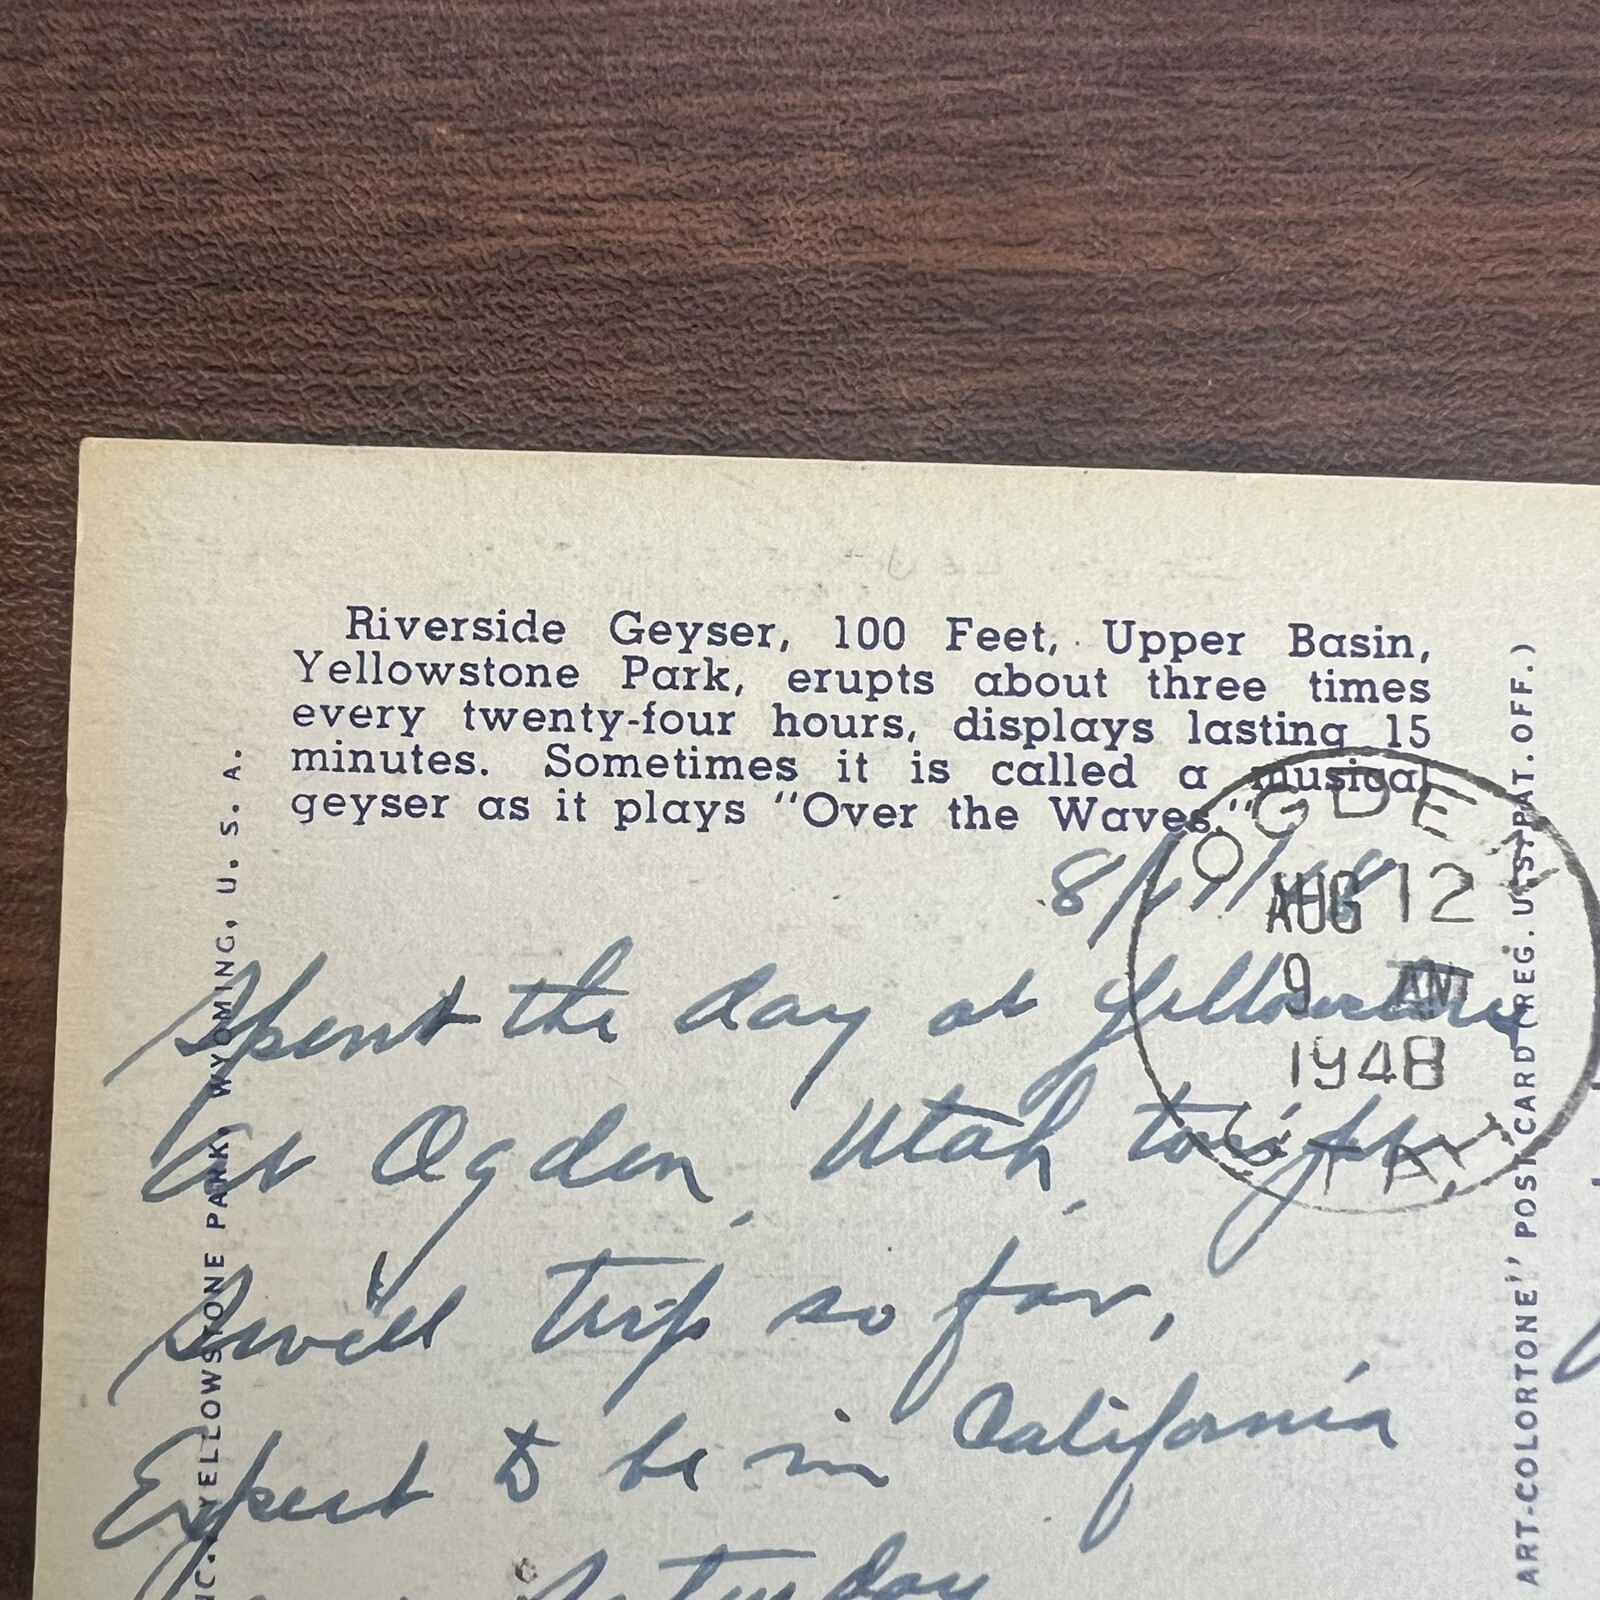 Riverside Geyser, 100 Feet, Upper Basin,
Yellowstone Park, erupts about three times
every twenty-four hours, displays lasting 15
minutes. Sometimes it is called a musical
geyser as it plays "Over the Waves."
OGDEN
AUG 12
9 AM
1948
UTAH
8/11/48
Spent the day at Yellowstone
At Ogden, Utah, tonight,
Swell trip so far,
Expect to be in California
Saturday
YELLOWSTONE PARK, WYOMING, U. S. A.
ART-COLORTONE" POST CARD (REG. U.S. PAT. OFF.)